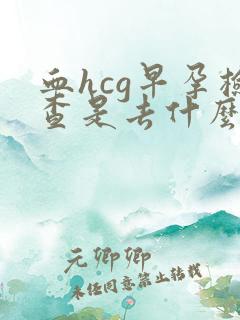 血hcg早孕检
查是去什麽
元卿卿
未经同意禁止转载